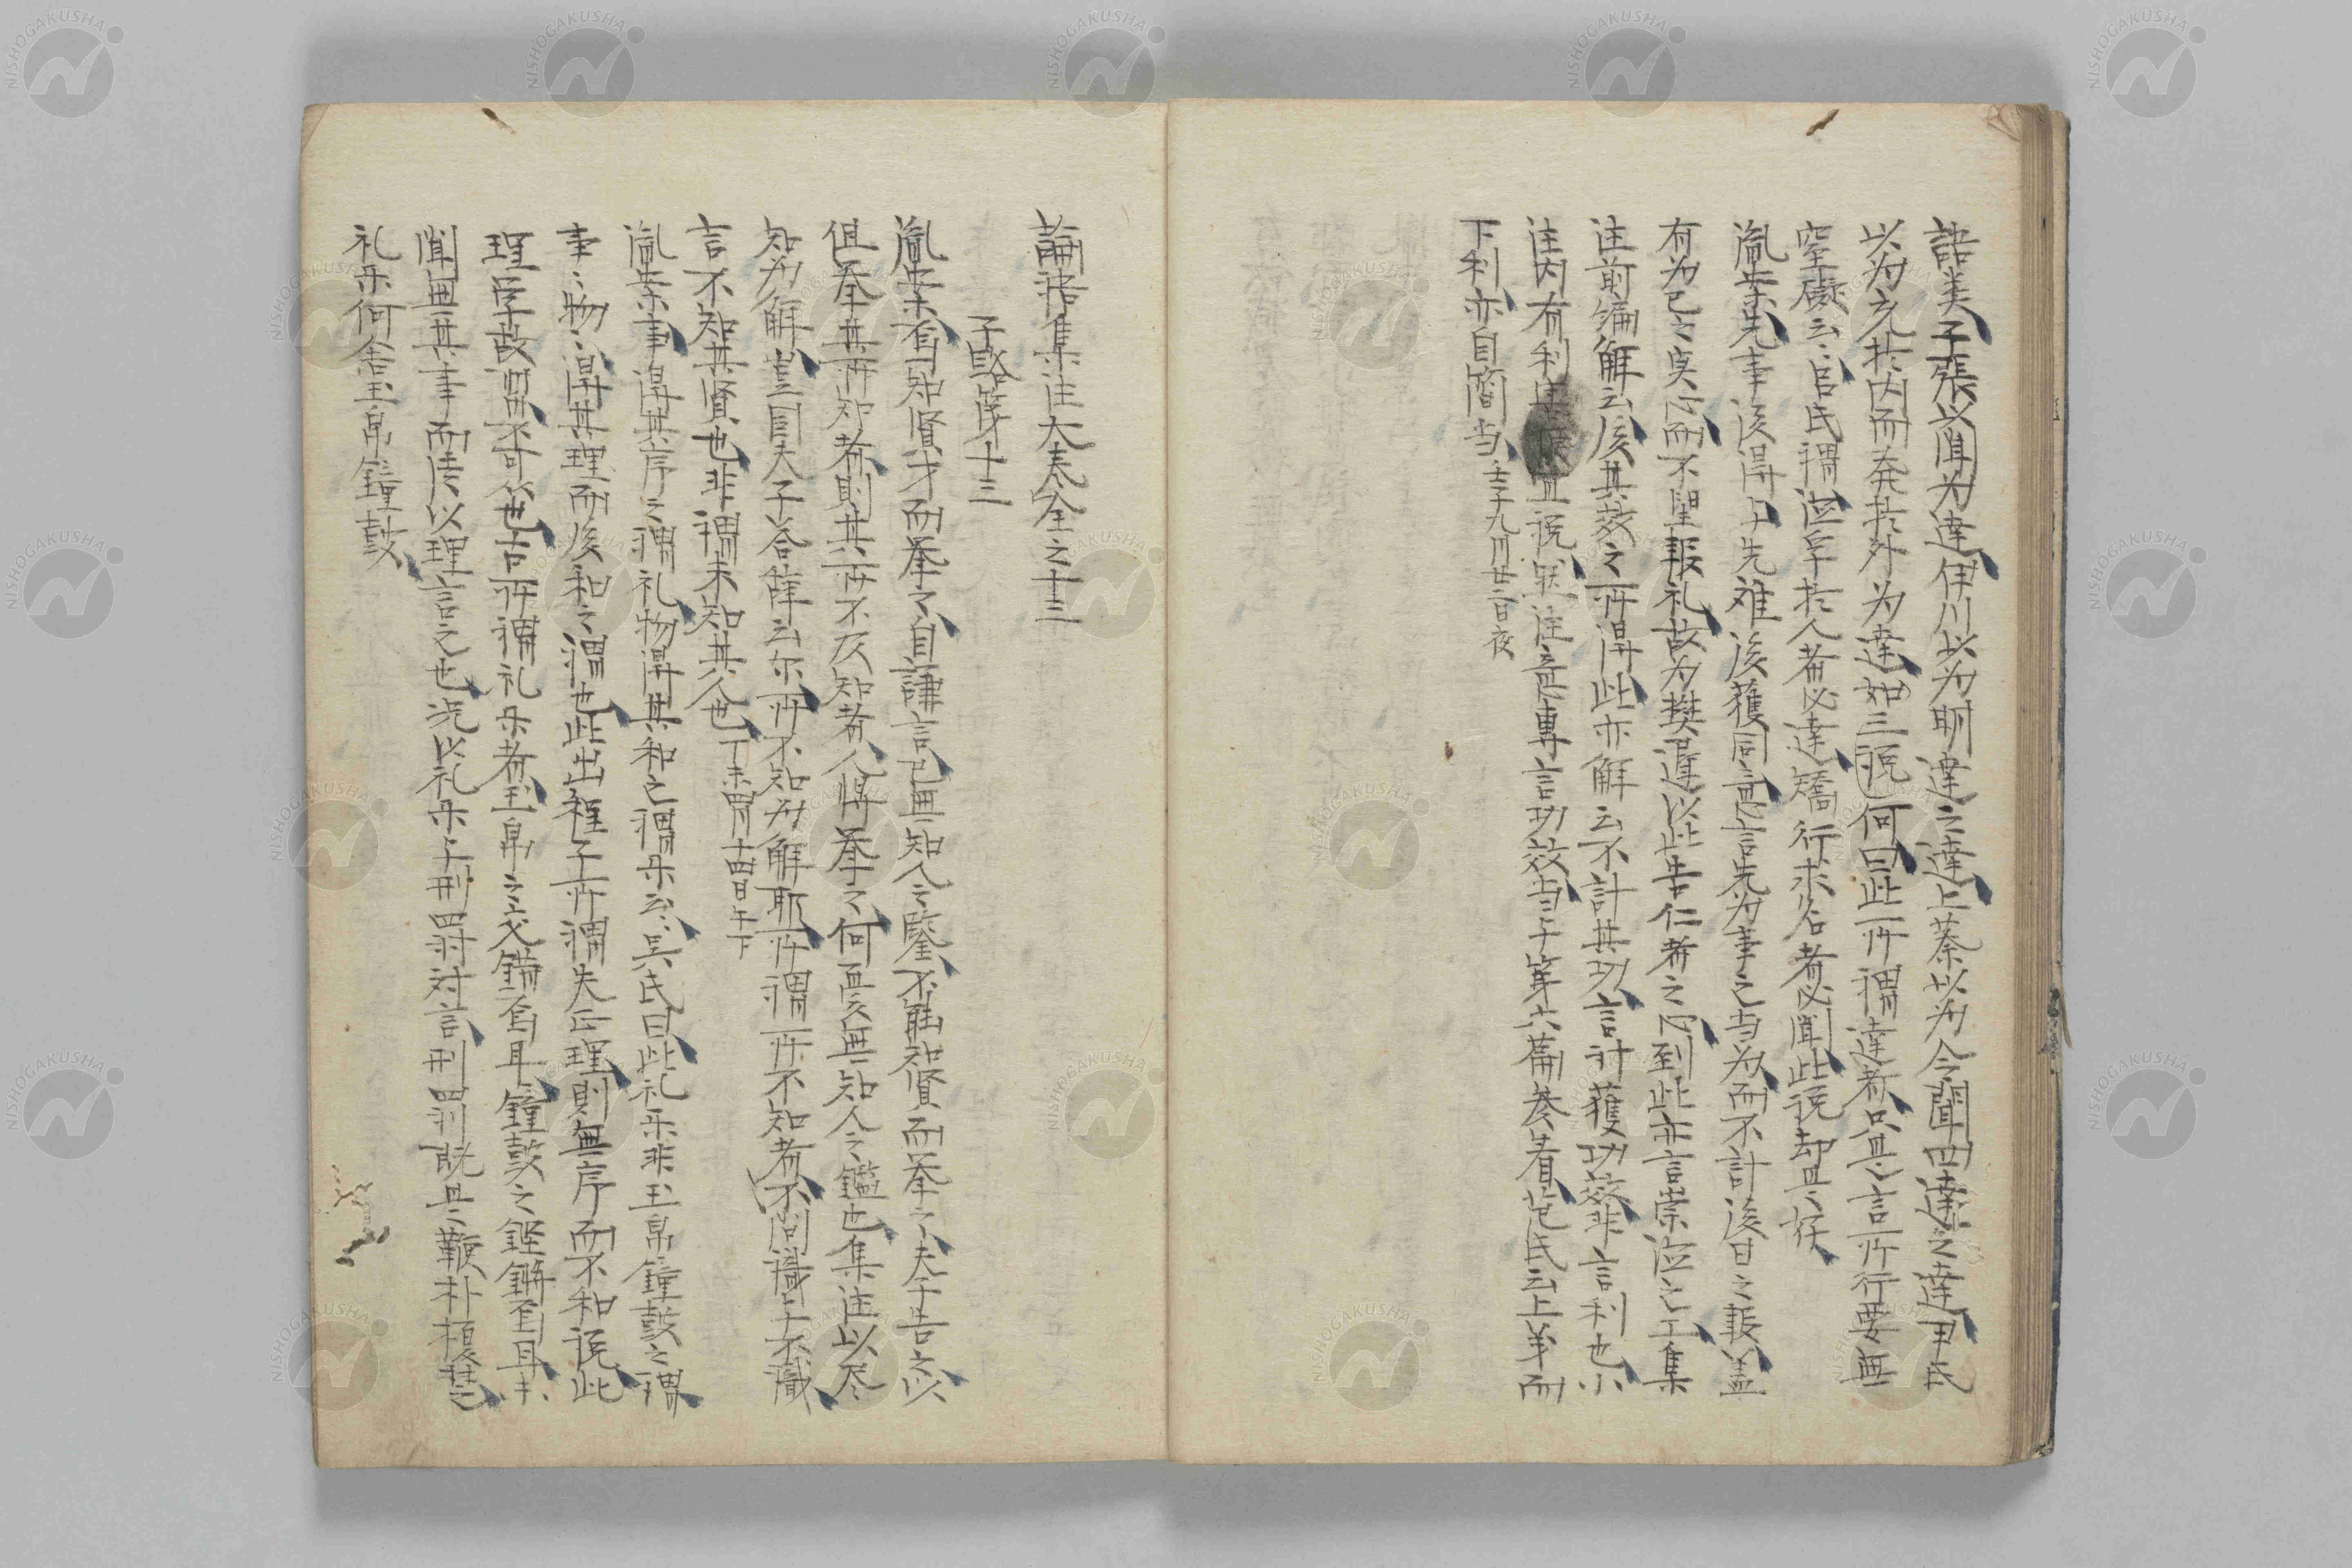 詰美子張以聞為達伊川以為明達之達上蔡以為令聞四達之達尹氏
以為充於内而発於外為達如三説何曰此所謂達者只是言所行要無
窒礙云云呂氏謂徳孚於人者必達矯行求名者必聞此説却是好
胤案先事後得上先难後獲同意言先為事之当為而不計後日之報盖
有为己之实心而不望報礼故为樊遲以此告仁者之心到此亦言崇徳之工集
注前编解云後其效之所得此亦解云不計其功言計獲功效非言利也小
注内有利害 且説然注意專言功效当与第六篇参看范氏云上羊而
下利亦自簡当壬子九月廿二日夜
論語集注大全之十三
子路第十三
胤案有司知賢才而举之自謙言己無知人之鑒不能知賢而举之夫子告之以
但举其所知者則其所不及知者人将举之何憂無知人之鑑也集注以尽
知为解豈圓夫子答辞云尔所不知为解耶所謂所不知者不同謂上不識
言不知其賢也非謂未知其人也丁未 十四日午下
胤案事得其序之謂礼物得其和之謂楽云云吴氏曰此礼楽非玉帛鐘鼓之謂
事事物物得其理而後和之謂也此出程子所謂失正理則無序而不和説此
理学故謂 不可也古所謂礼楽者玉帛之交錯 耳鐘鼓之鏗鏘 耳未
聞無其事而徒以理言之也況以礼楽与刑罰対言刑罰既是鞭朴榎楚
礼楽何舎玉帛鐘鼓